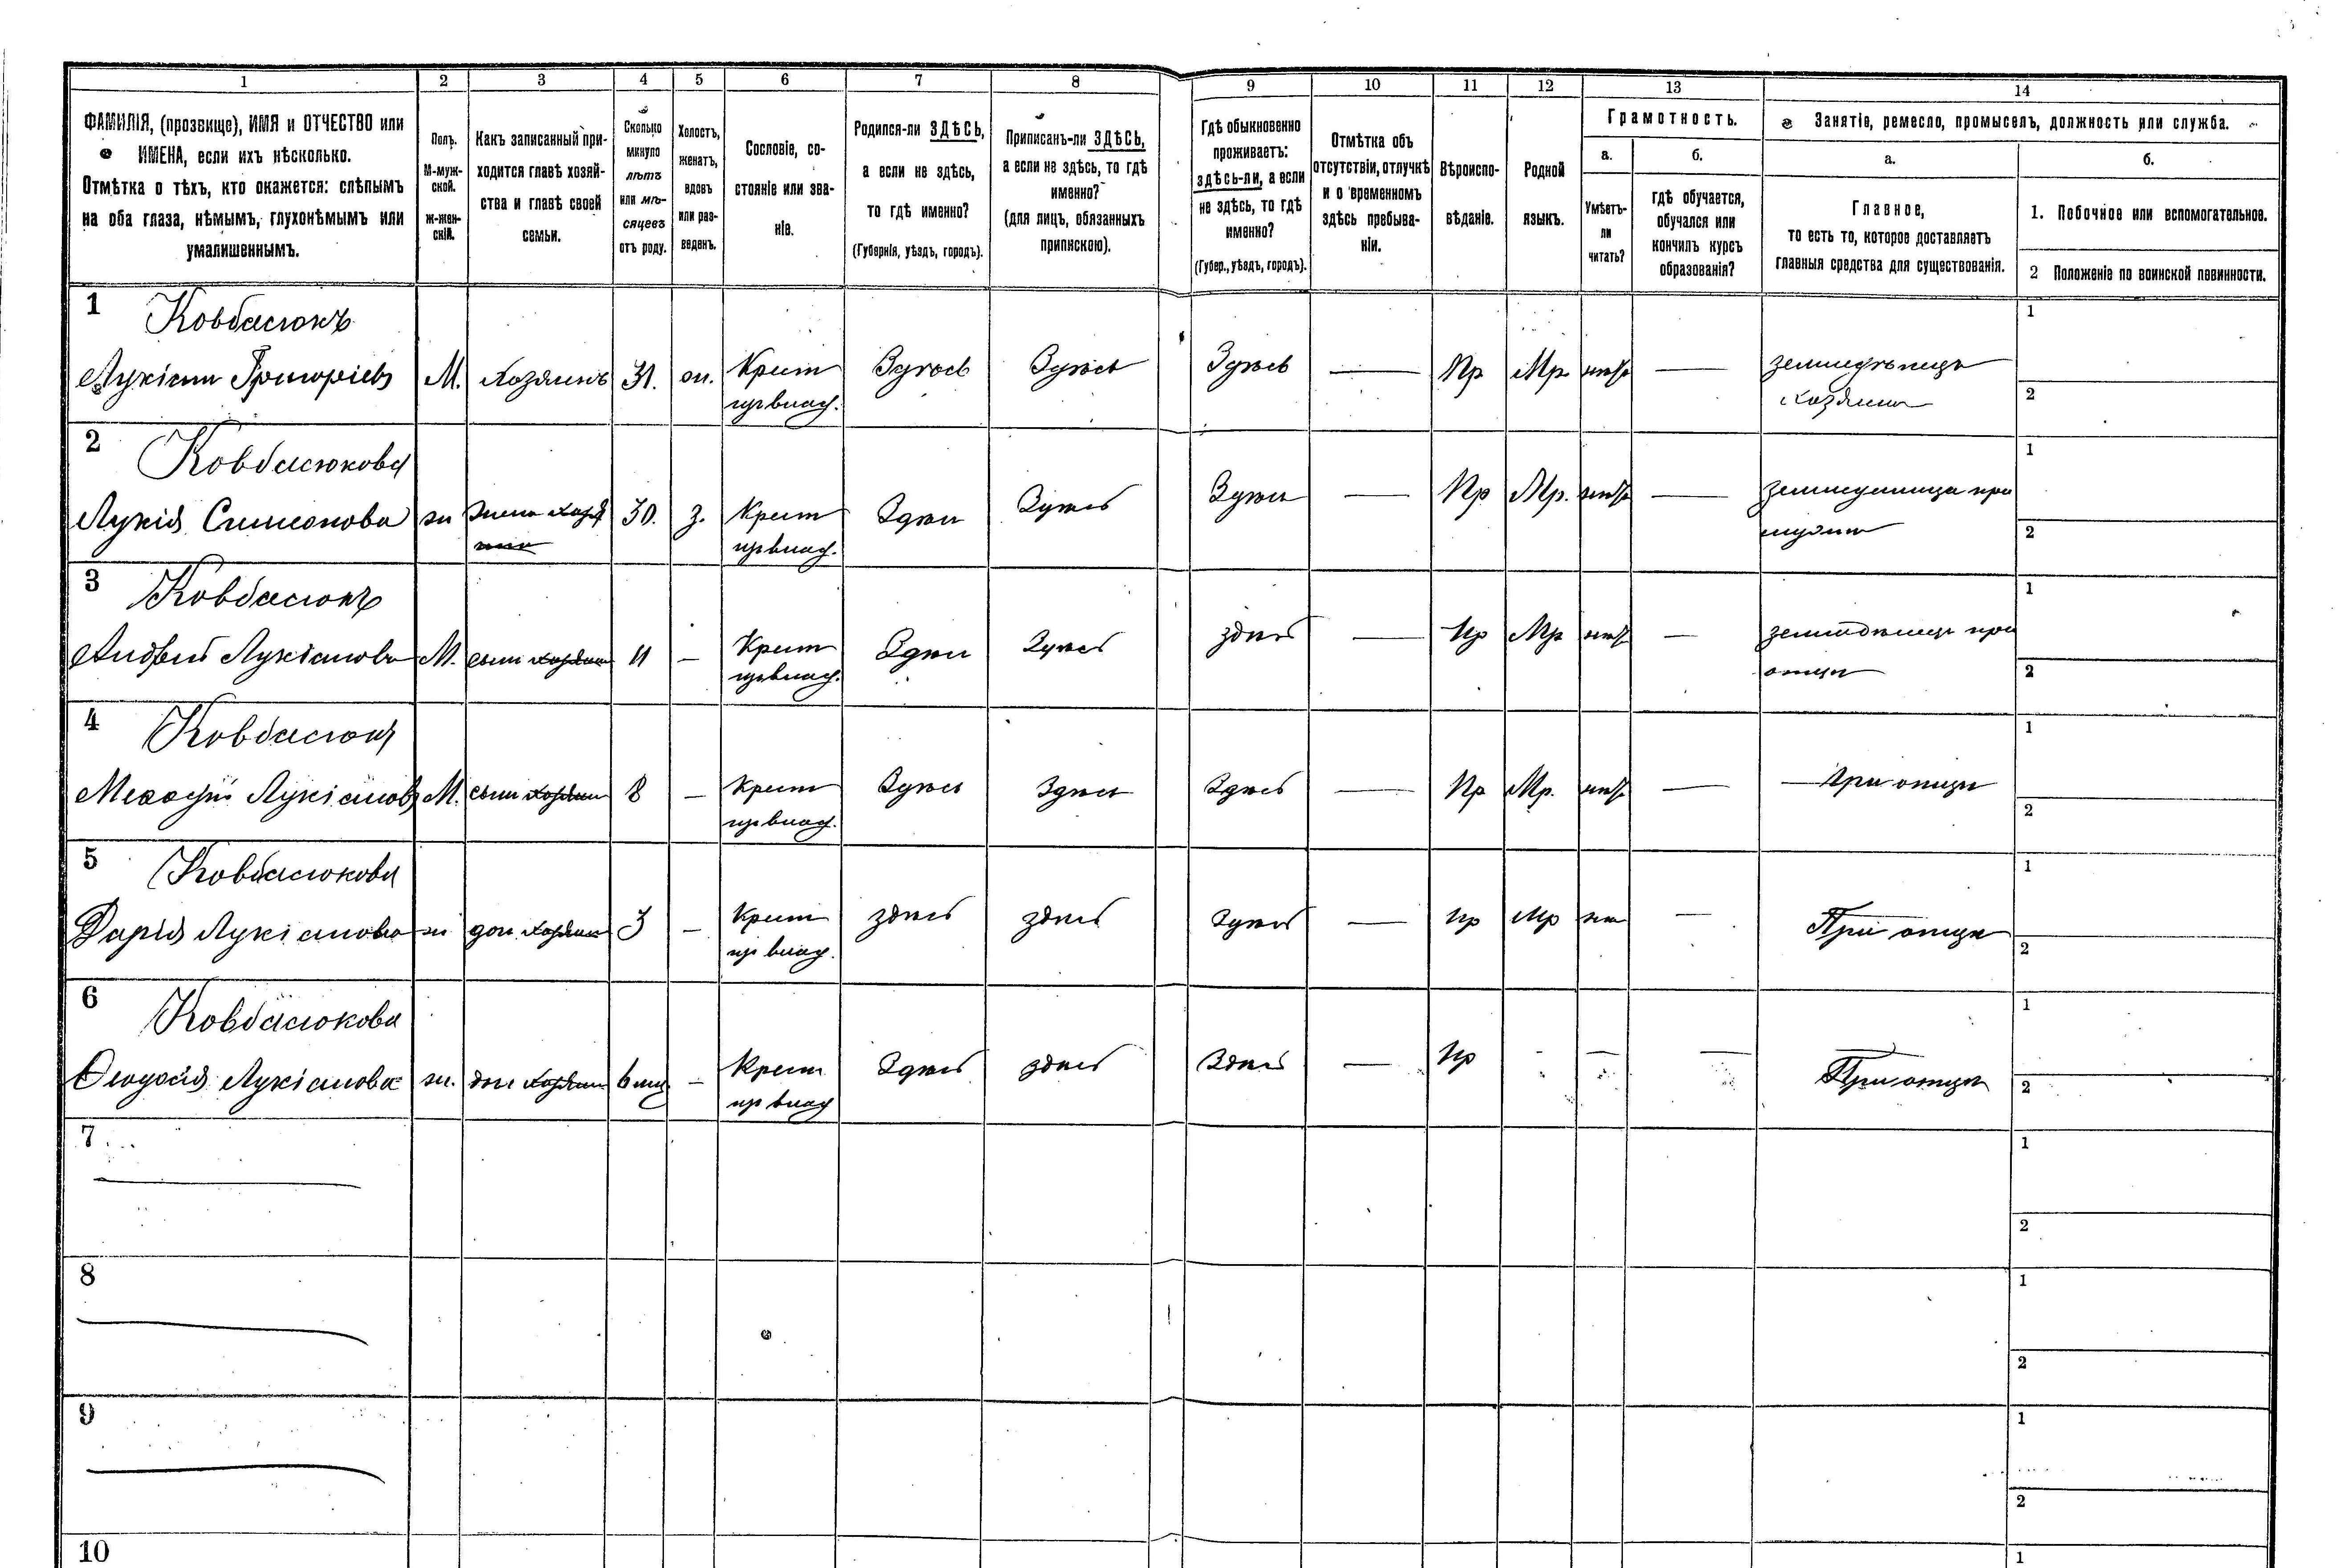 1 2 3 4 5 6 7 8 9 10 11 12 13 14
ФАМИЛІЯ, (прозвище), ИМЯ и ОТЧЕСТВО или
ИМЕНА, если ихъ нѣсколько.
Отмѣтка о тѣхъ, кто окажется: слѣпымъ
на оба глаза, нѣмымъ, глухонѣмымъ или
умалишеннымъ.
Полъ.
М-муж-
ской.
ж-жен-
скій.
Какъ записанный при-
ходится главѣ хозяй-
ства и главѣ своей
семьи.
Сколько
минуло
лѣтъ
или мѣ-
сяцевъ
отъ роду.
Холостъ,
женатъ,
вдовъ
или раз-
веденъ.
Сословіе, со-
стояніе или зва-
ніе.
Родился-ли ЗДѢСЬ,
а если не здѣсь,
то гдѣ именно?
(Губернія, уѣздъ, городъ).
Приписанъ-ли ЗДѢСЬ,
а если не здѣсь, то гдѣ
именно?
(для лицъ, обязанныхъ
припискою).
Гдѣ обыкновенно
проживаетъ:
здѣсь-ли, а если
не здѣсь, то гдѣ
именно?
(Губер., уѣздъ, городъ).
Отмѣтка объ
отсутствіи, отлучкѣ
и о временномъ
здѣсь пребыва-
ніи.
Вѣроиспо-
вѣданіе.
Родной
языкъ.
Грамотность.
а.
Умѣетъ-
ли
читать?
б.
гдѣ обучается,
обучался или
кончилъ курсъ
образованія?
Занятіе, ремесло, промыселъ, должность или служба.
а.
Главное,
то есть то, которое доставляетъ
главныя средства для существованія.
б.
1. Побочное или вспомогательное.
2 Положеніе по воинской повинности.
1 Ковбасюкъ
Лукіянъ Григоріевъ М. Хозяинъ 31. ж. Крест Здѣсь Здѣсь Здѣсь — Пр Мр нѣтъ — земледѣлецъ
из влад. хозяинъ
1
2
2 Ковбасюкова
Лукія Симеонова ж жена хозя 30. з. Крест Здѣсь Здѣсь Здѣсь — Пр Мр. нѣтъ —
из влад.
1
2
3 Ковбасюкъ
Андрей Лукіановъ М. сынъ хозяин 11 — Крест Здѣсь Здѣсь здѣсь — Пр Мр нѣтъ — земледѣлецъ при
из влад. отцѣ
1
2
4 Ковбасюкъ
Лукіановъ М. сынъ хозяин 8 — Крест Здѣсь Здѣсь Здѣсь — Пр Мр. нѣтъ — При отцѣ
из влад.
1
2
5 Ковбасюкова
Дарія Лукіанова ж доч хозяин 3 — Крест здѣсь здѣсь Здѣсь — Пр Мр нѣт — При отцѣ
из влад.
1
2
6 Ковбасюкова
Ѳеодосія Лукіанова ж. доч хозяин 6 мц — Крест Здѣсь здѣсь Здѣсь — Пр - — — При отцѣ
из влад
1
2
7
1
2
8
1
2
9
1
2
10
1